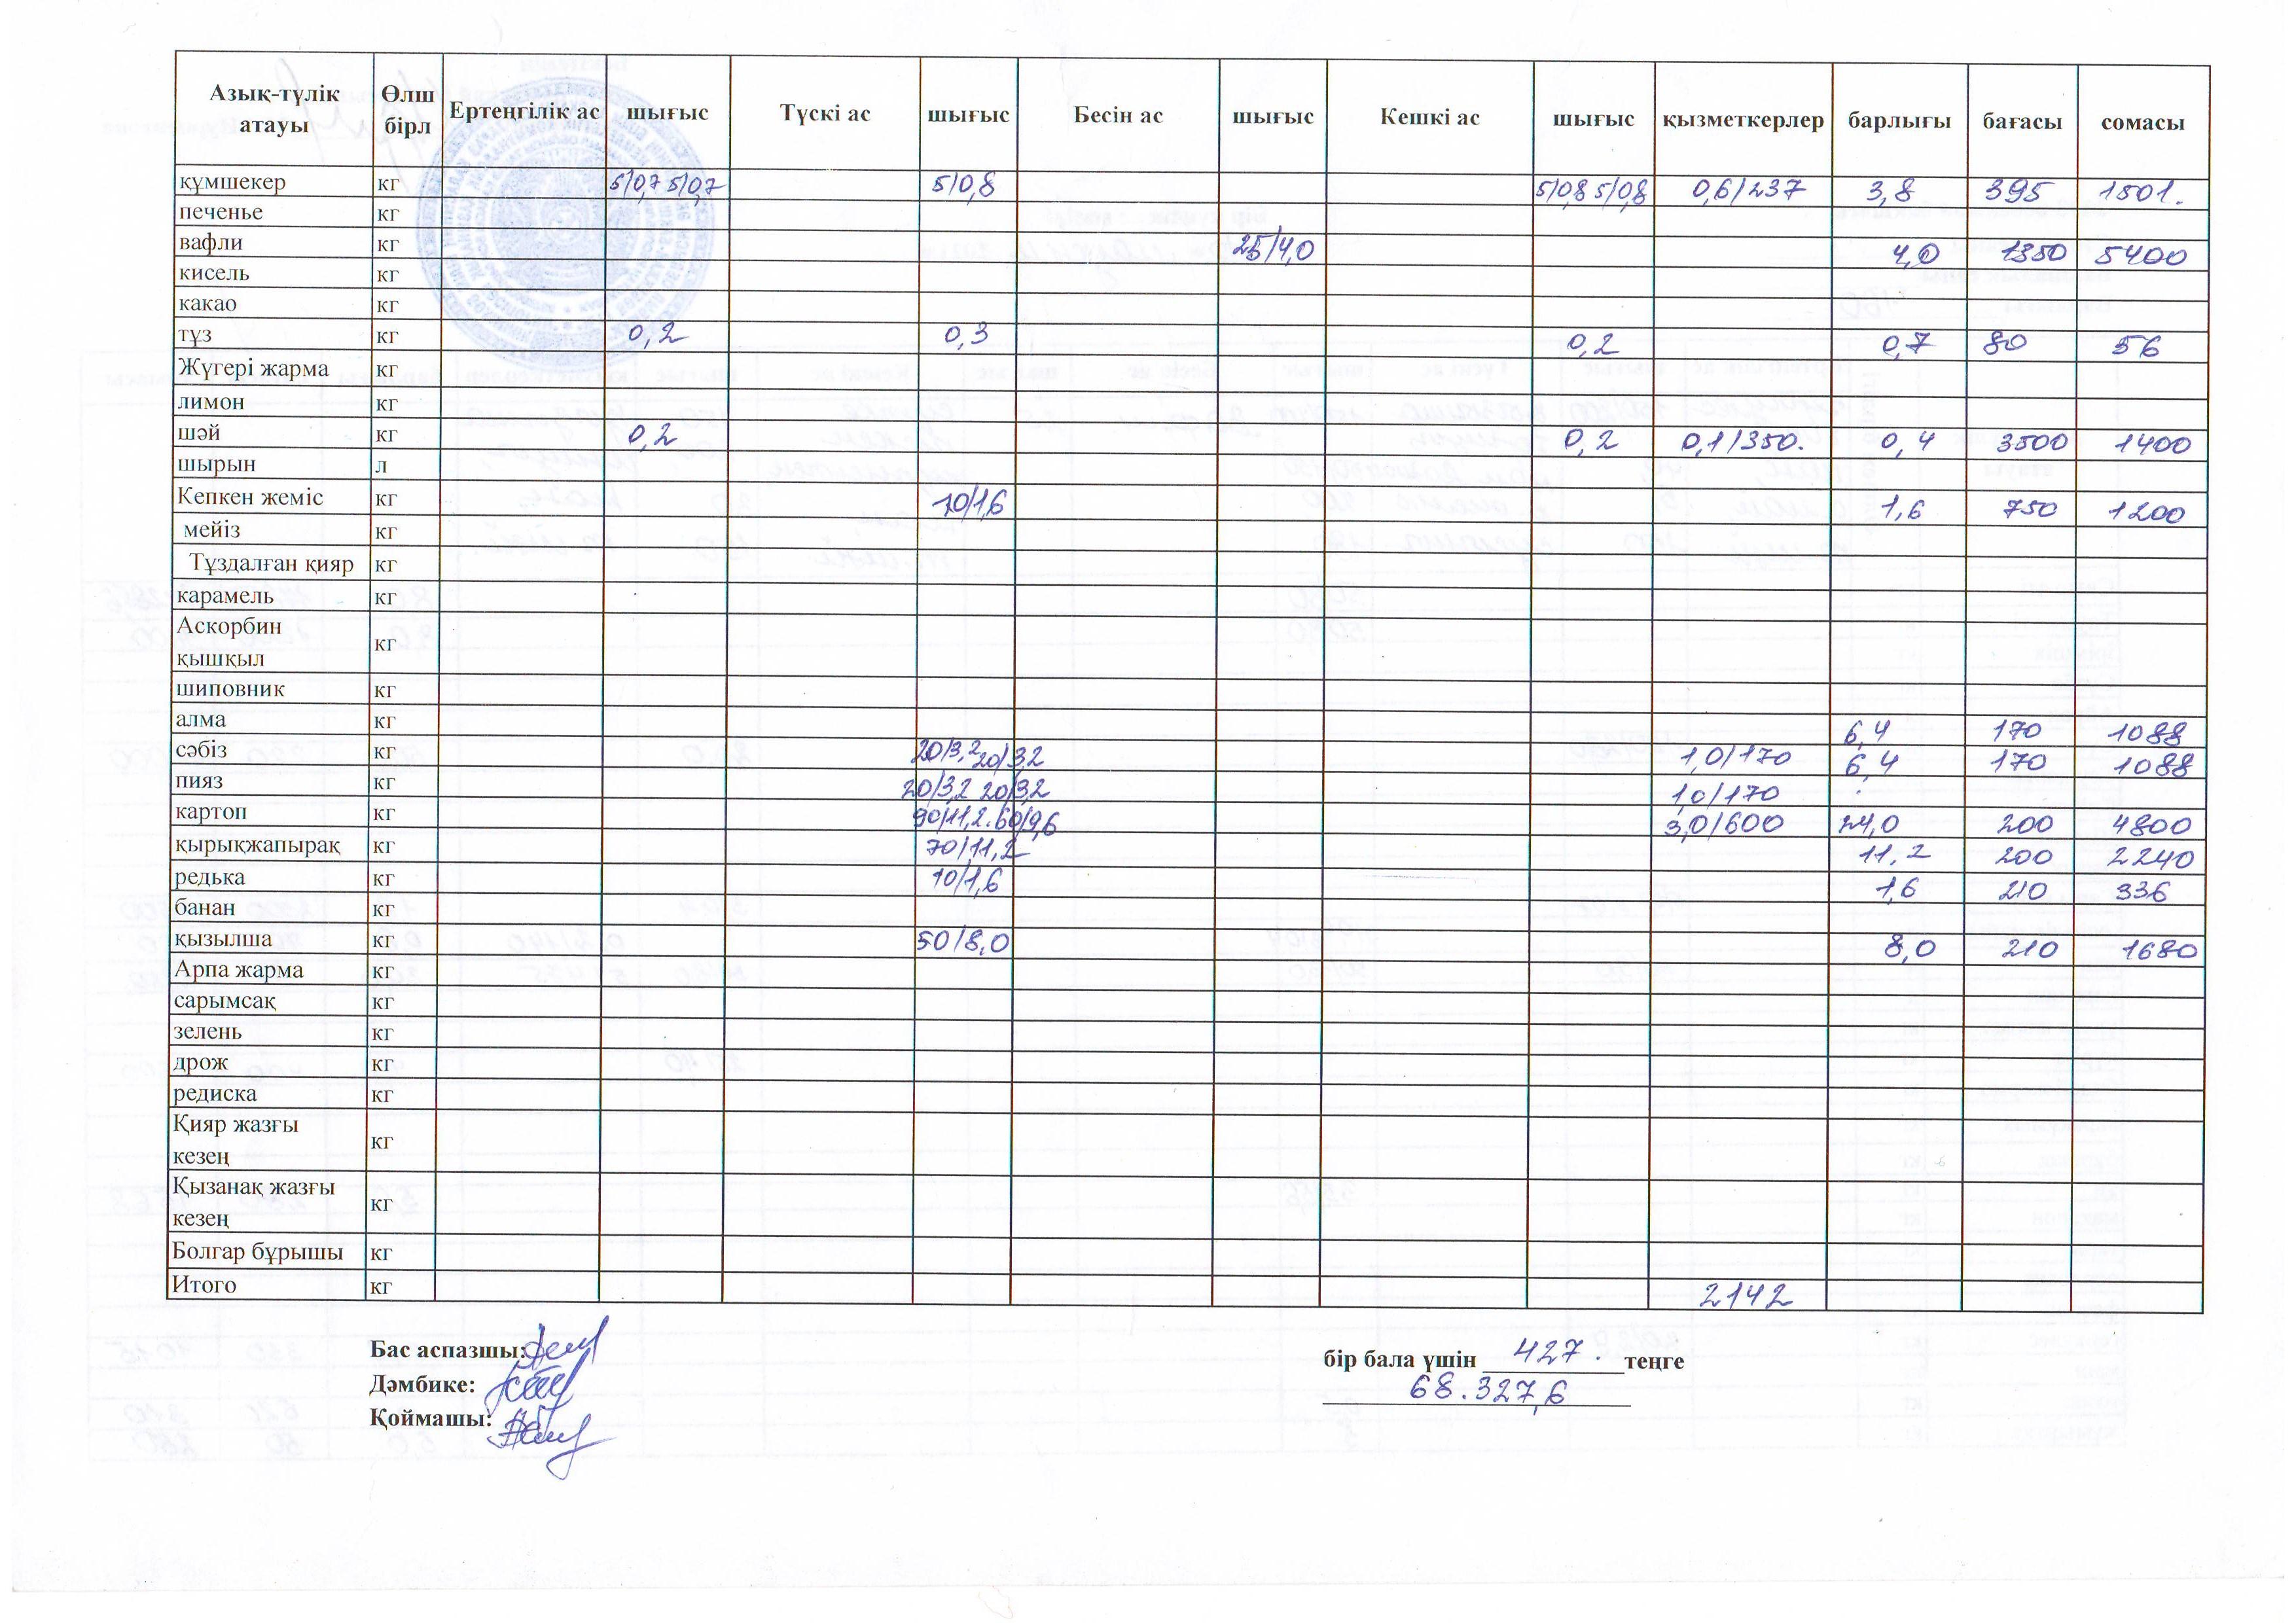 Азық-түлік атауы Өлш бірл Ертеңгілік ас шығыс Түскі ас шығыс Бесін ас шығыс Кешкі ас шығыс қызметкерлер барлығы бағасы сомасы
құмшекер кг 5/0,7 5/0,7 5/0,8 5/0,8 5/0,8 0,6/237 3,8 395 1501.
печенье кг
вафли кг 25/4,0 4,0 1350 5400
кисель кг
какао кг
тұз кг 0,2 0,3 0,2 0,7 80 56
Жүгері жарма кг
лимон кг
шәй кг 0,2 0,2 0,1/350. 0,4 3500 1400
шырын л
Кепкен жеміс кг 10/1,6 1,6 750 1200
мейіз кг
Тұздалған қияр кг
карамель кг
Аскорбин қышқыл кг
шиповник кг
алма кг 6,4 170 1088
сәбіз кг 20/3,2 20/3,2 1,0/170 6,4 170 1088
пияз кг 20/3,2 20/3,2 1,0/170
картоп кг 90/11,2. 60/9,6 3,0/600 24,0 200 4800
қырықжапырақ кг 70/11,2 11,2 200 2240
редька кг 10/1,6 1,6 210 336
банан кг
қызылша кг 50/8,0 8,0 210 1680
Арпа жарма кг
сарымсақ кг
зелень кг
дрож кг
редиска кг
Қияр жазғы кезең кг
Қызанақ жазғы кезең кг
Болгар бұрышы кг
Итого кг 2142
Бас аспазшы:
бір бала үшін 427. теңге
Дәмбике:
68.327,6
Қоймашы: